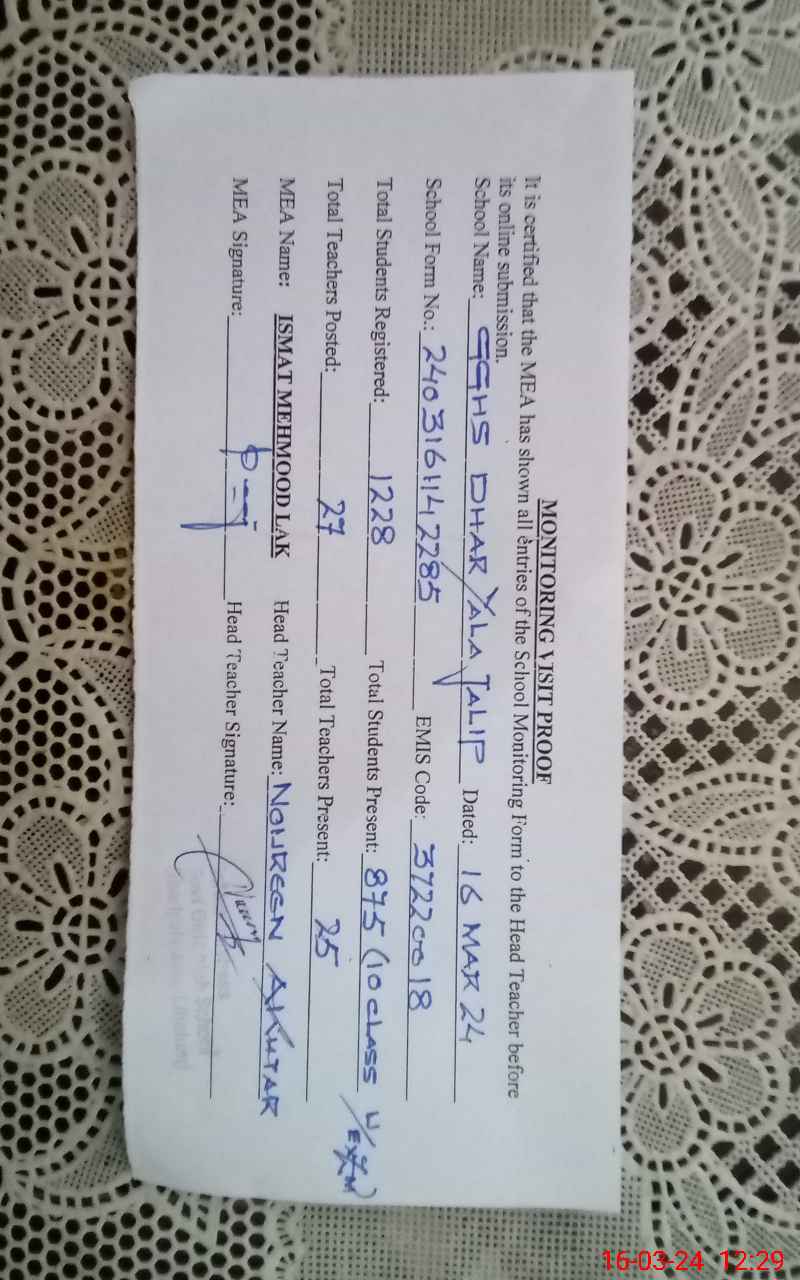 MONITORING VISIT PROOF
It is certified that the MEA has shown all entries of the School Monitoring Form to the Head Teacher before
its online submission.
School Name: GGHS DHARYALA JALIP Dated: 16 MAR 24
School Form No.: 240316114 2285 EMIS Code: 37220018
Total Students Registered: 1228 Total Students Present: 875 (10 CLASS U/EXAM)
Total Teachers Posted: 27 Total Teachers Present: 25
MEA Name: ISMAT MEHMOOD LAK Head Teacher Name: NOUREEN AKHTAR
MEA Signature: Head Teacher Signature:
16-03-24 12:29